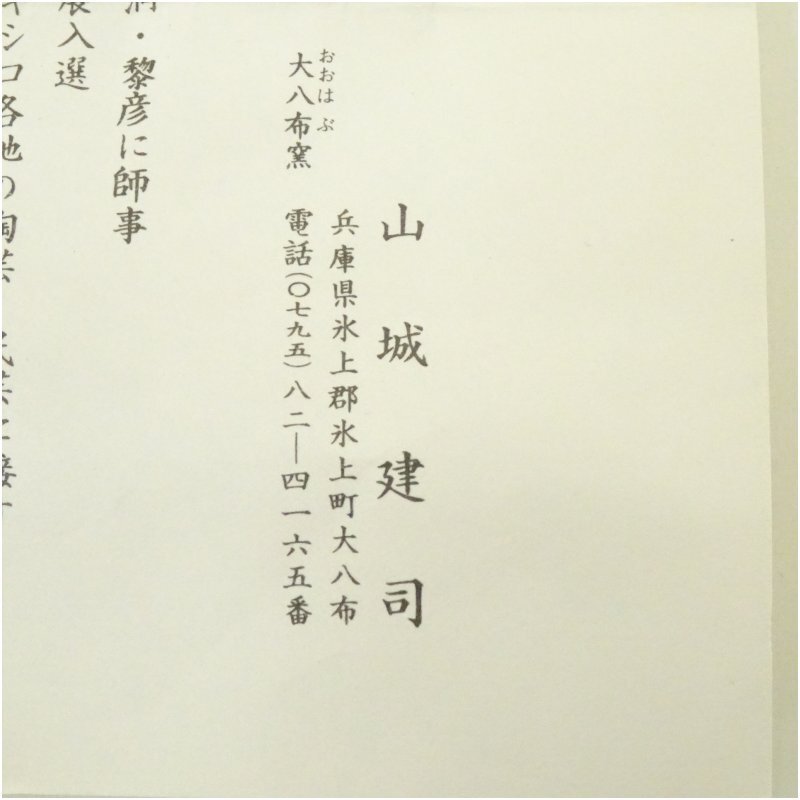 山城建司
兵庫県氷上郡氷上町大八布
おおはぶ
大八布窯 電話(〇七九五)八二―四一六五番
・黎彦に師事
展入選
シコ各地の陶芸